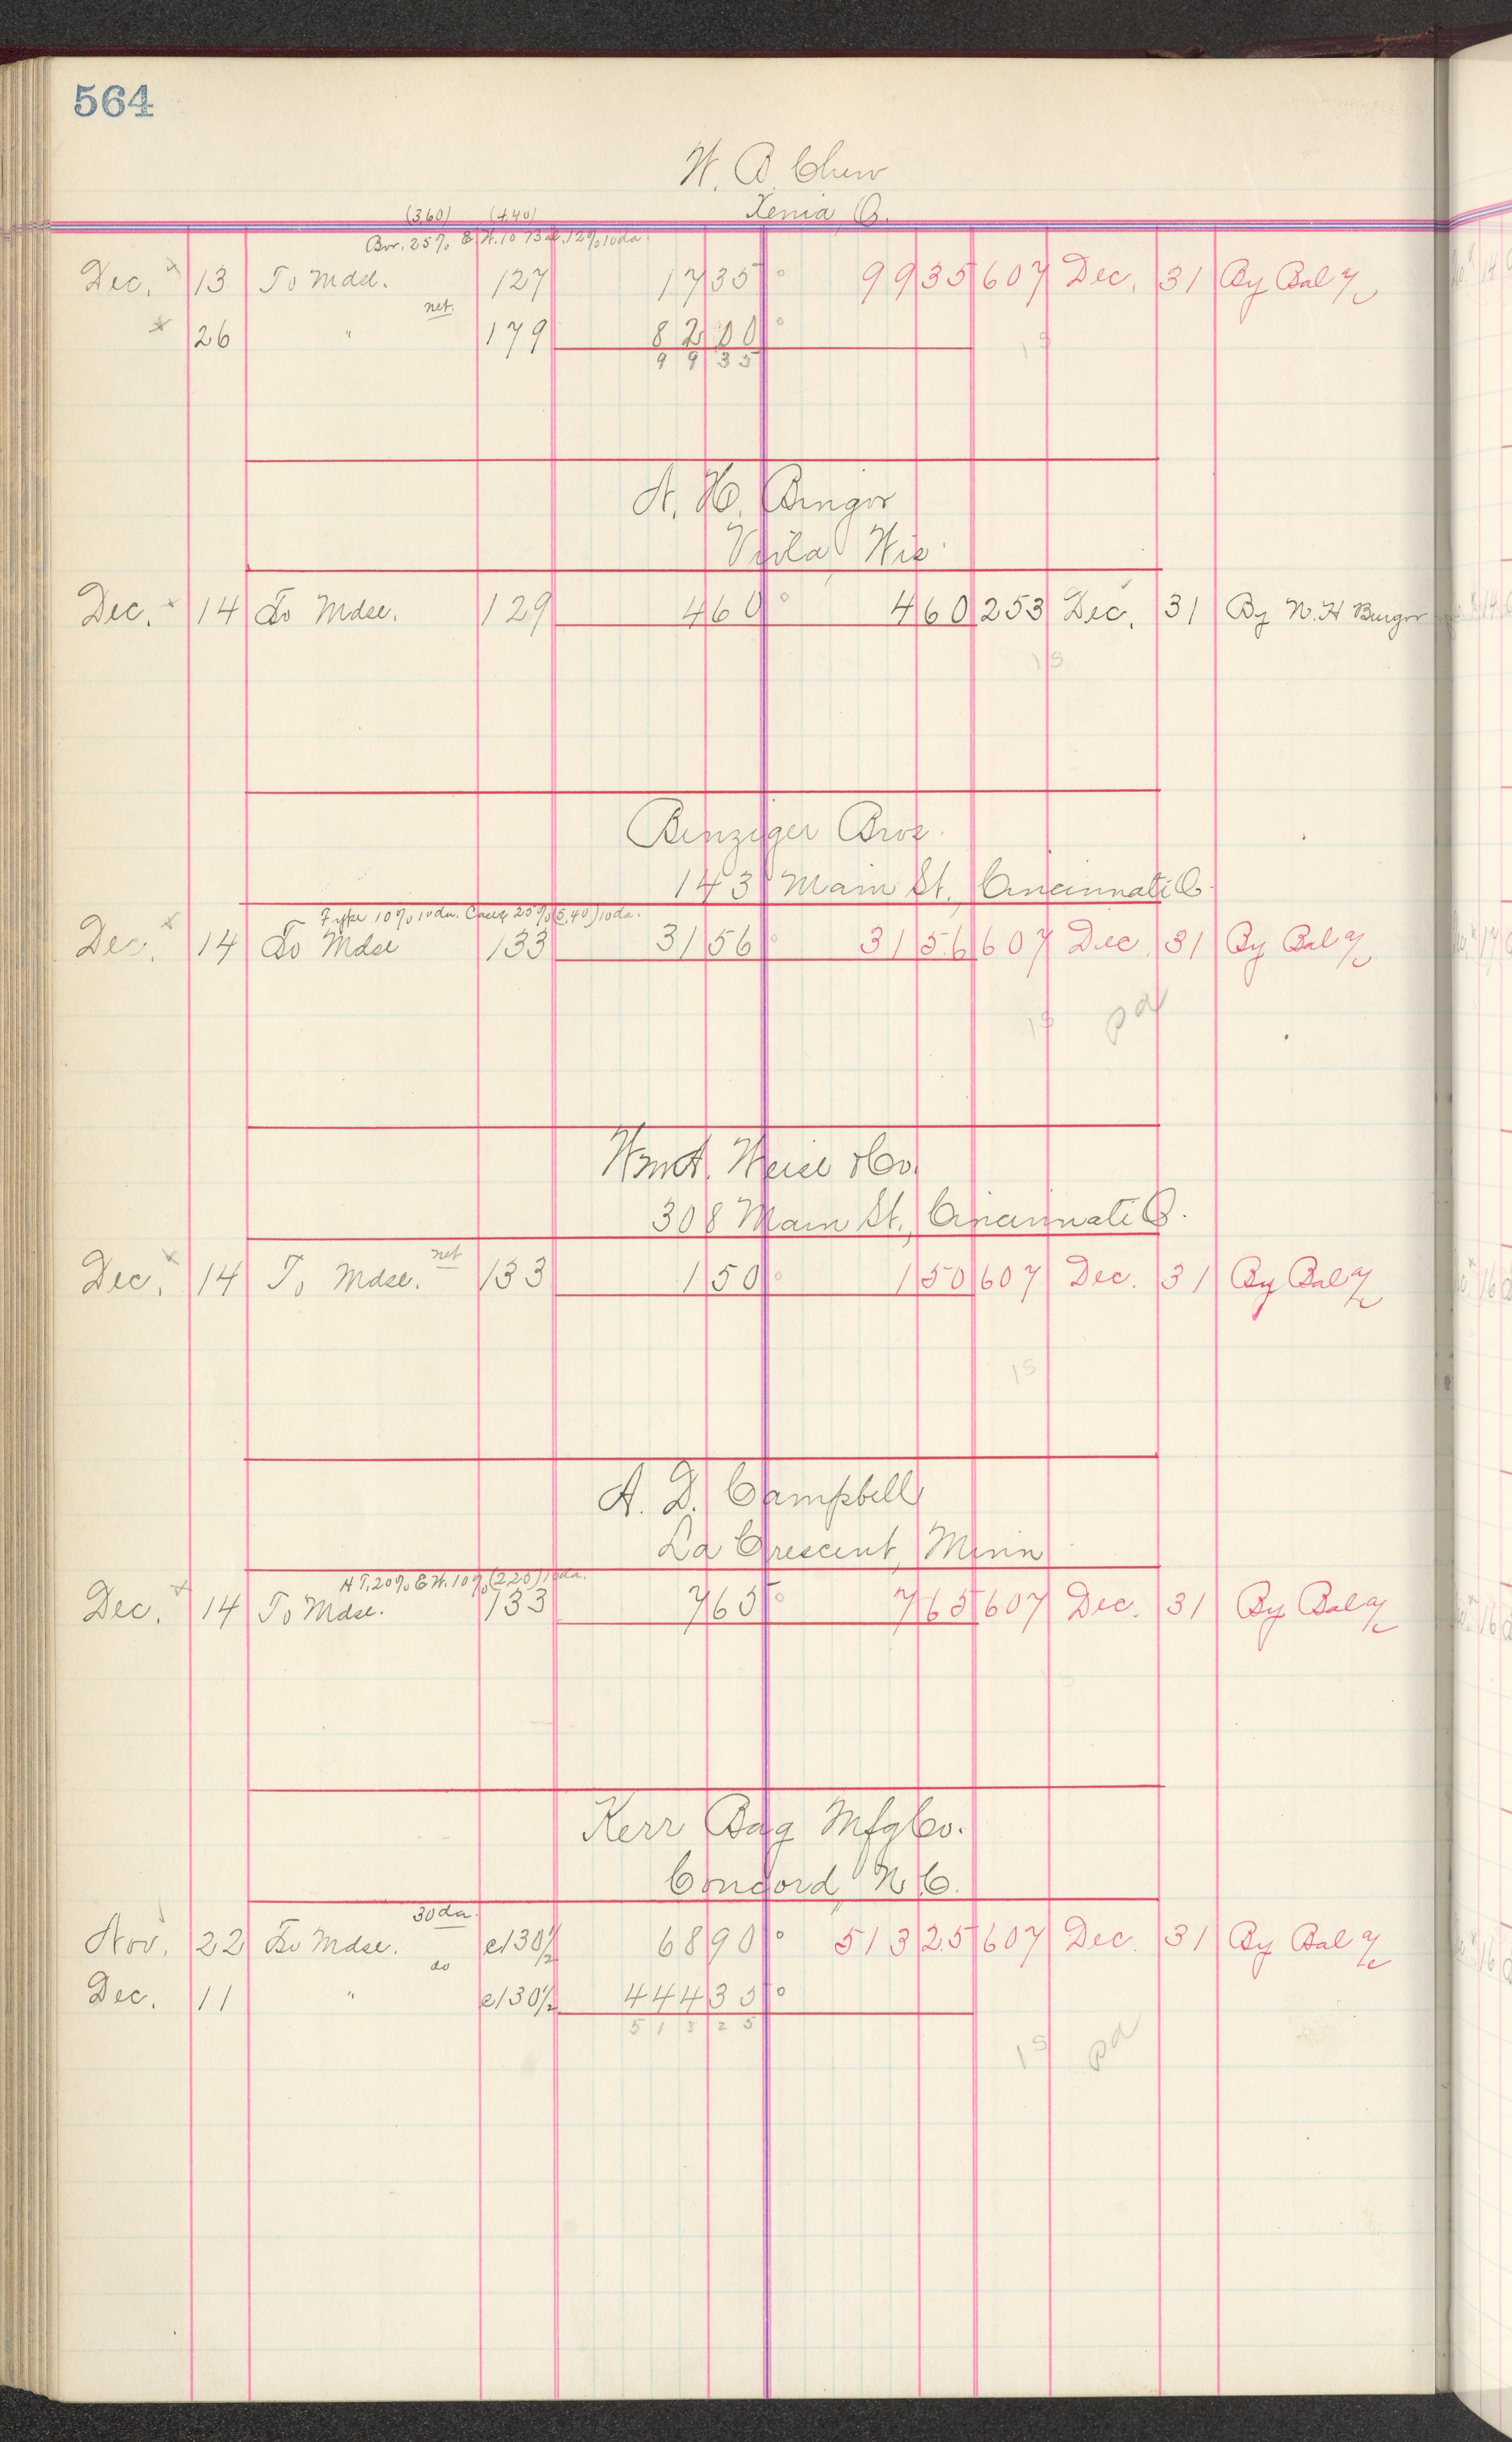 564
W. B. Chew
Xenia, O.
(3.60) (4.40)
Bor. 25% E.W. 10 Bal. 12% 10 da.
Dec. 13 To Mdse. 127 17 35 99 35 607 Dec. 31 By Bal a/c
net.
26 " 179 82 00
99 35
A. H. Bingor
Viola Wis.
Dec. 14 To Mdse. 129 4 60 4 60 253 Dec. 31 By N. H Burgor
15
Benziger Bros.
143 Main St. Cincinnati O.
Type 10% 10 da. Cases 25% (5.40) 10 da.
Dec. 14 To Mdse 133 31 56 31 56 607 Dec. 31 By Bal a/c
15 pd
Wm A. Weise & Co.
308 Main St., Cincinnati O.
net
Dec. 14 To Mdse. 133 1 50 1 50 607 Dec. 31 By Bal a/c
15
A. D. Campbell
La Crescent, Minn
H T. 20% E W. 10% (2.25) 10 da.
Dec. 14 To Mdse. 133 7 65 7 65 607 Dec. 31 By Bal a/c
Kerr Bag Mfg Co.
Concord N. C.
30 da.
Nov. 22 To Mdse. c130½ 68 90 513 25 607 Dec. 31 By Bal a/c
do
Dec. 11 " c130½ 444 35
513 25
15 pd